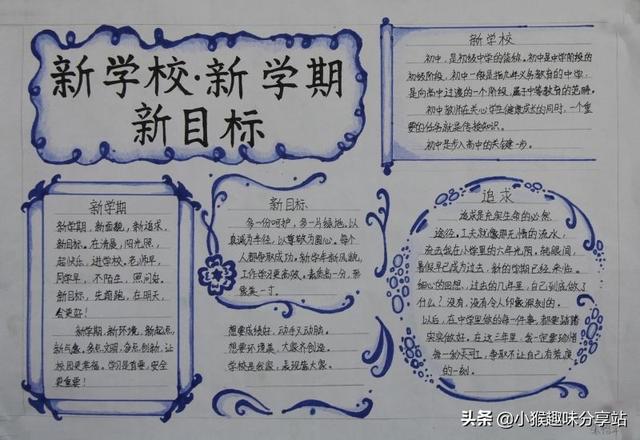 新学校·新学期
新目标
新学校
初中，是初级中学的简称。初中是中学阶段的
初级阶段，初中一般是指九年义务教育的中学，
是向高中过渡的一个阶段，属于中等教育的范畴。
初中教师在关心学生健康成长的同时，一个重
要的任务就是传授知识。
初中是步入高中的关键一步。
新学期
新学期，新面貌，新追求，
新目标。在清晨，阳光照，
起快乐，进学校。老师早，
同学早，不陌生，照问着。
新目标，先赶跑，在明天，
会更好！
新学期，新环境，新起点，
新气象，多点文明，争点创新，让
校园更幸福。学习是首要，安全
更重要！
新目标
多一份呵护，多一片绿地。以
真诚为半径，以尊敬为圆心。每个
人都争取成功。新学年新风貌，
工作学习更高效。素质高一分，形
象美一寸。
想要成绩好，动手又动脑。
想要环境美，大家齐创造。
学校是我家，表现靠大家。
追求
追求是充实生命的必然
途径。工夫就像那无情的流水，
流去我在小学里的六年光阴，转眼间，
暑假早已成为过去，新的学期已经来临。
细心的回想，过去的几年里，自己到底做了
什么？没有，没有令人印象深刻的。
以后，在中学里做的每一件事，都要踏踏
实实做好。在这三年里，我一定要珍惜
每一秒天和工，争取不让自己有荒废
的一刻。
头条 @小猴趣味分享站